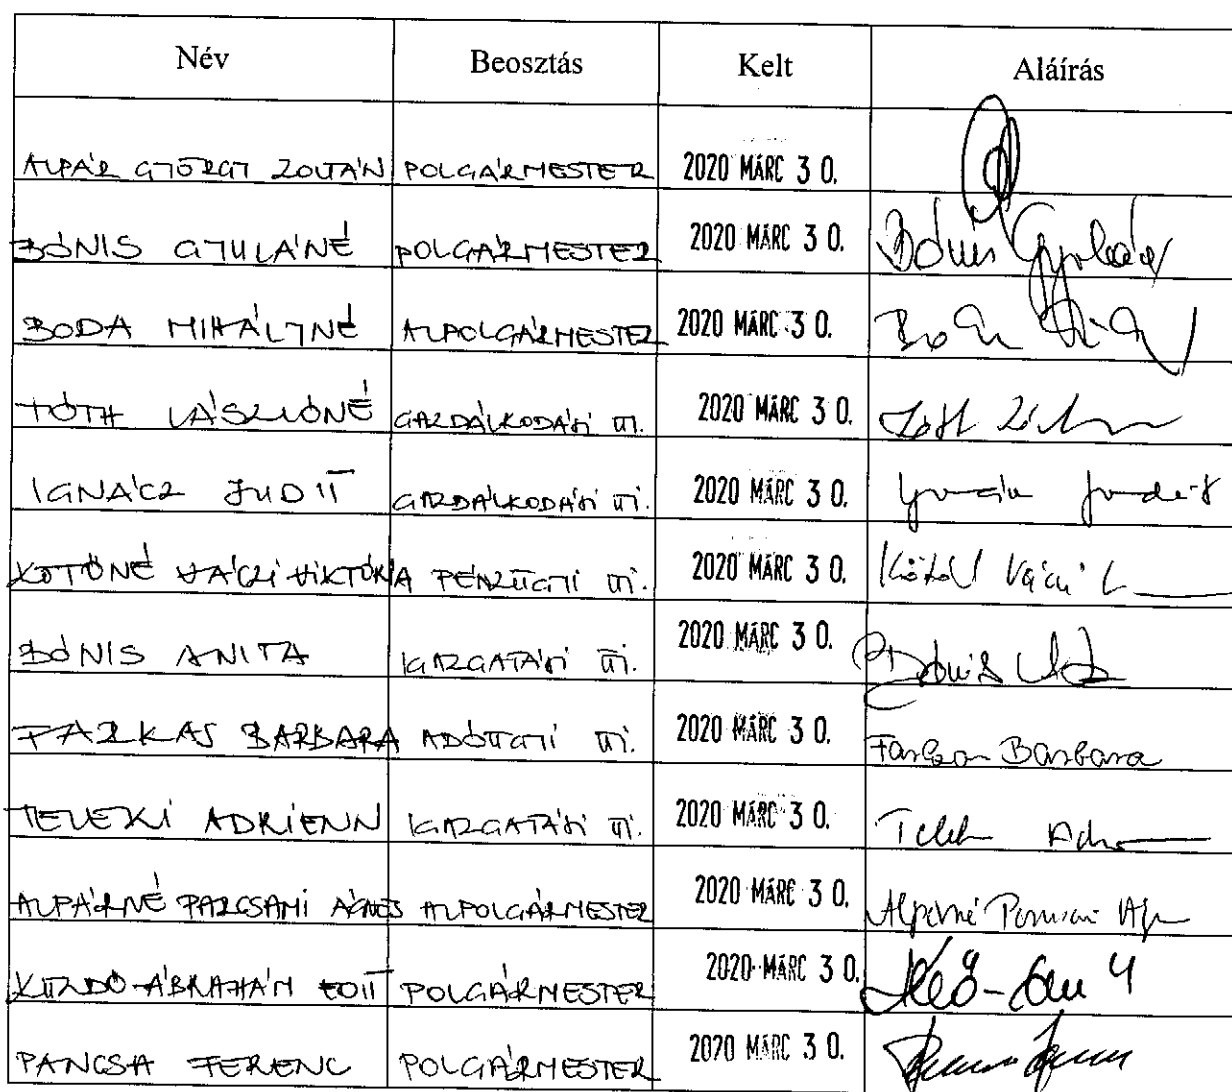 Név Beosztás Kelt Aláírás
ALPÁR GYÖRGY ZOLTÁN POLGÁRMESTER 2020 MÁRC 30.
BÓNIS GYULÁNÉ POLGÁRMESTER 2020 MÁRC 30. Bónis Gyuláné
BODA MIHÁLYNÉ ALPOLGÁRMESTER 2020 MÁRC 30.
TÓTH LÁSZLÓNÉ GAZDÁLKODÁSI ÜI. 2020 MÁRC 30.
IGNÁCZ JUDIT GAZDÁLKODÁSI ÜI. 2020 MÁRC 30. Ignácz Judit
VÁCZI VIKTÓRIA PÉNZÜGYI ÜI. 2020 MÁRC 30.
BÓNIS ANITA IGAZGATÁSI ÜI. 2020 MÁRC 30. Bónis
FARKAS BARBARA ADÓÜGYI ÜI. 2020 MÁRC 30. Farkas Barbara
TELEKI ADRIENN IGAZGATÁSI ÜI. 2020 MÁRC 30.
ALPÁRNÉ ÁGNES ALPOLGÁRMESTER 2020 MÁRC 30. Alpárné
ÁBRAHÁM EDIT POLGÁRMESTER 2020 MÁRC 30.
PANCSA FERENC POLGÁRMESTER 2020 MÁRC 30.